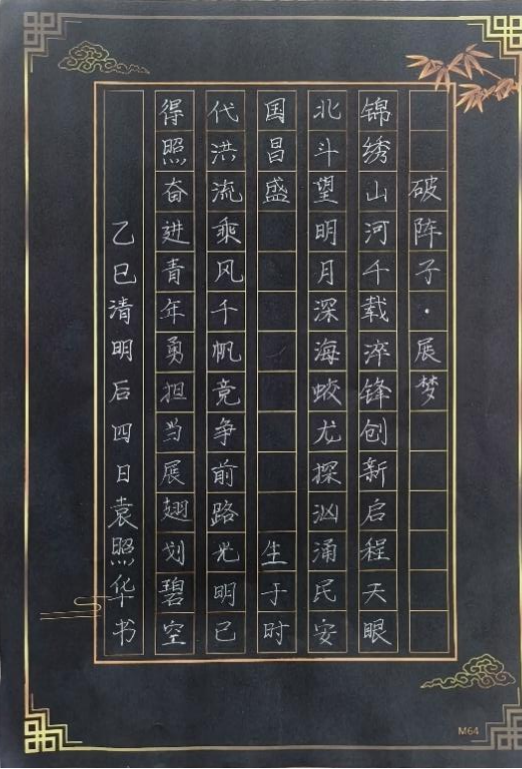 破阵子·展梦
锦绣山河千载淬锋创新启程天眼
北斗望明月深海蛟龙探汹涌民安
国昌盛 生于时
代洪流乘风千帆竞争前路光明已
得照奋进青年勇担当展翅划碧空
乙巳清明后四日袁照华书
M64